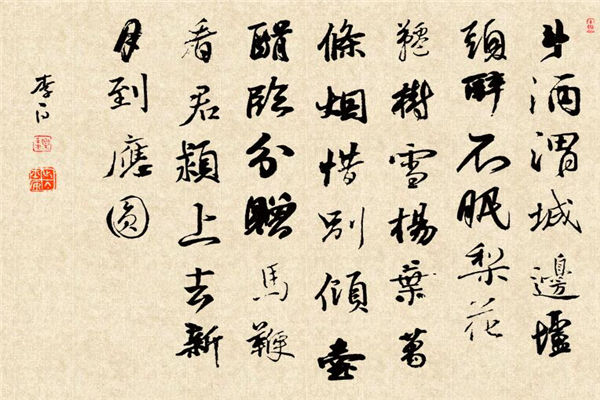 斗酒渭城邊壚
頭醉不眠梨花
韆樹雪楊葉萬
條烟惜別傾壺
醑臨分贈馬鞭
看君潁上去新
月到應圓
李白